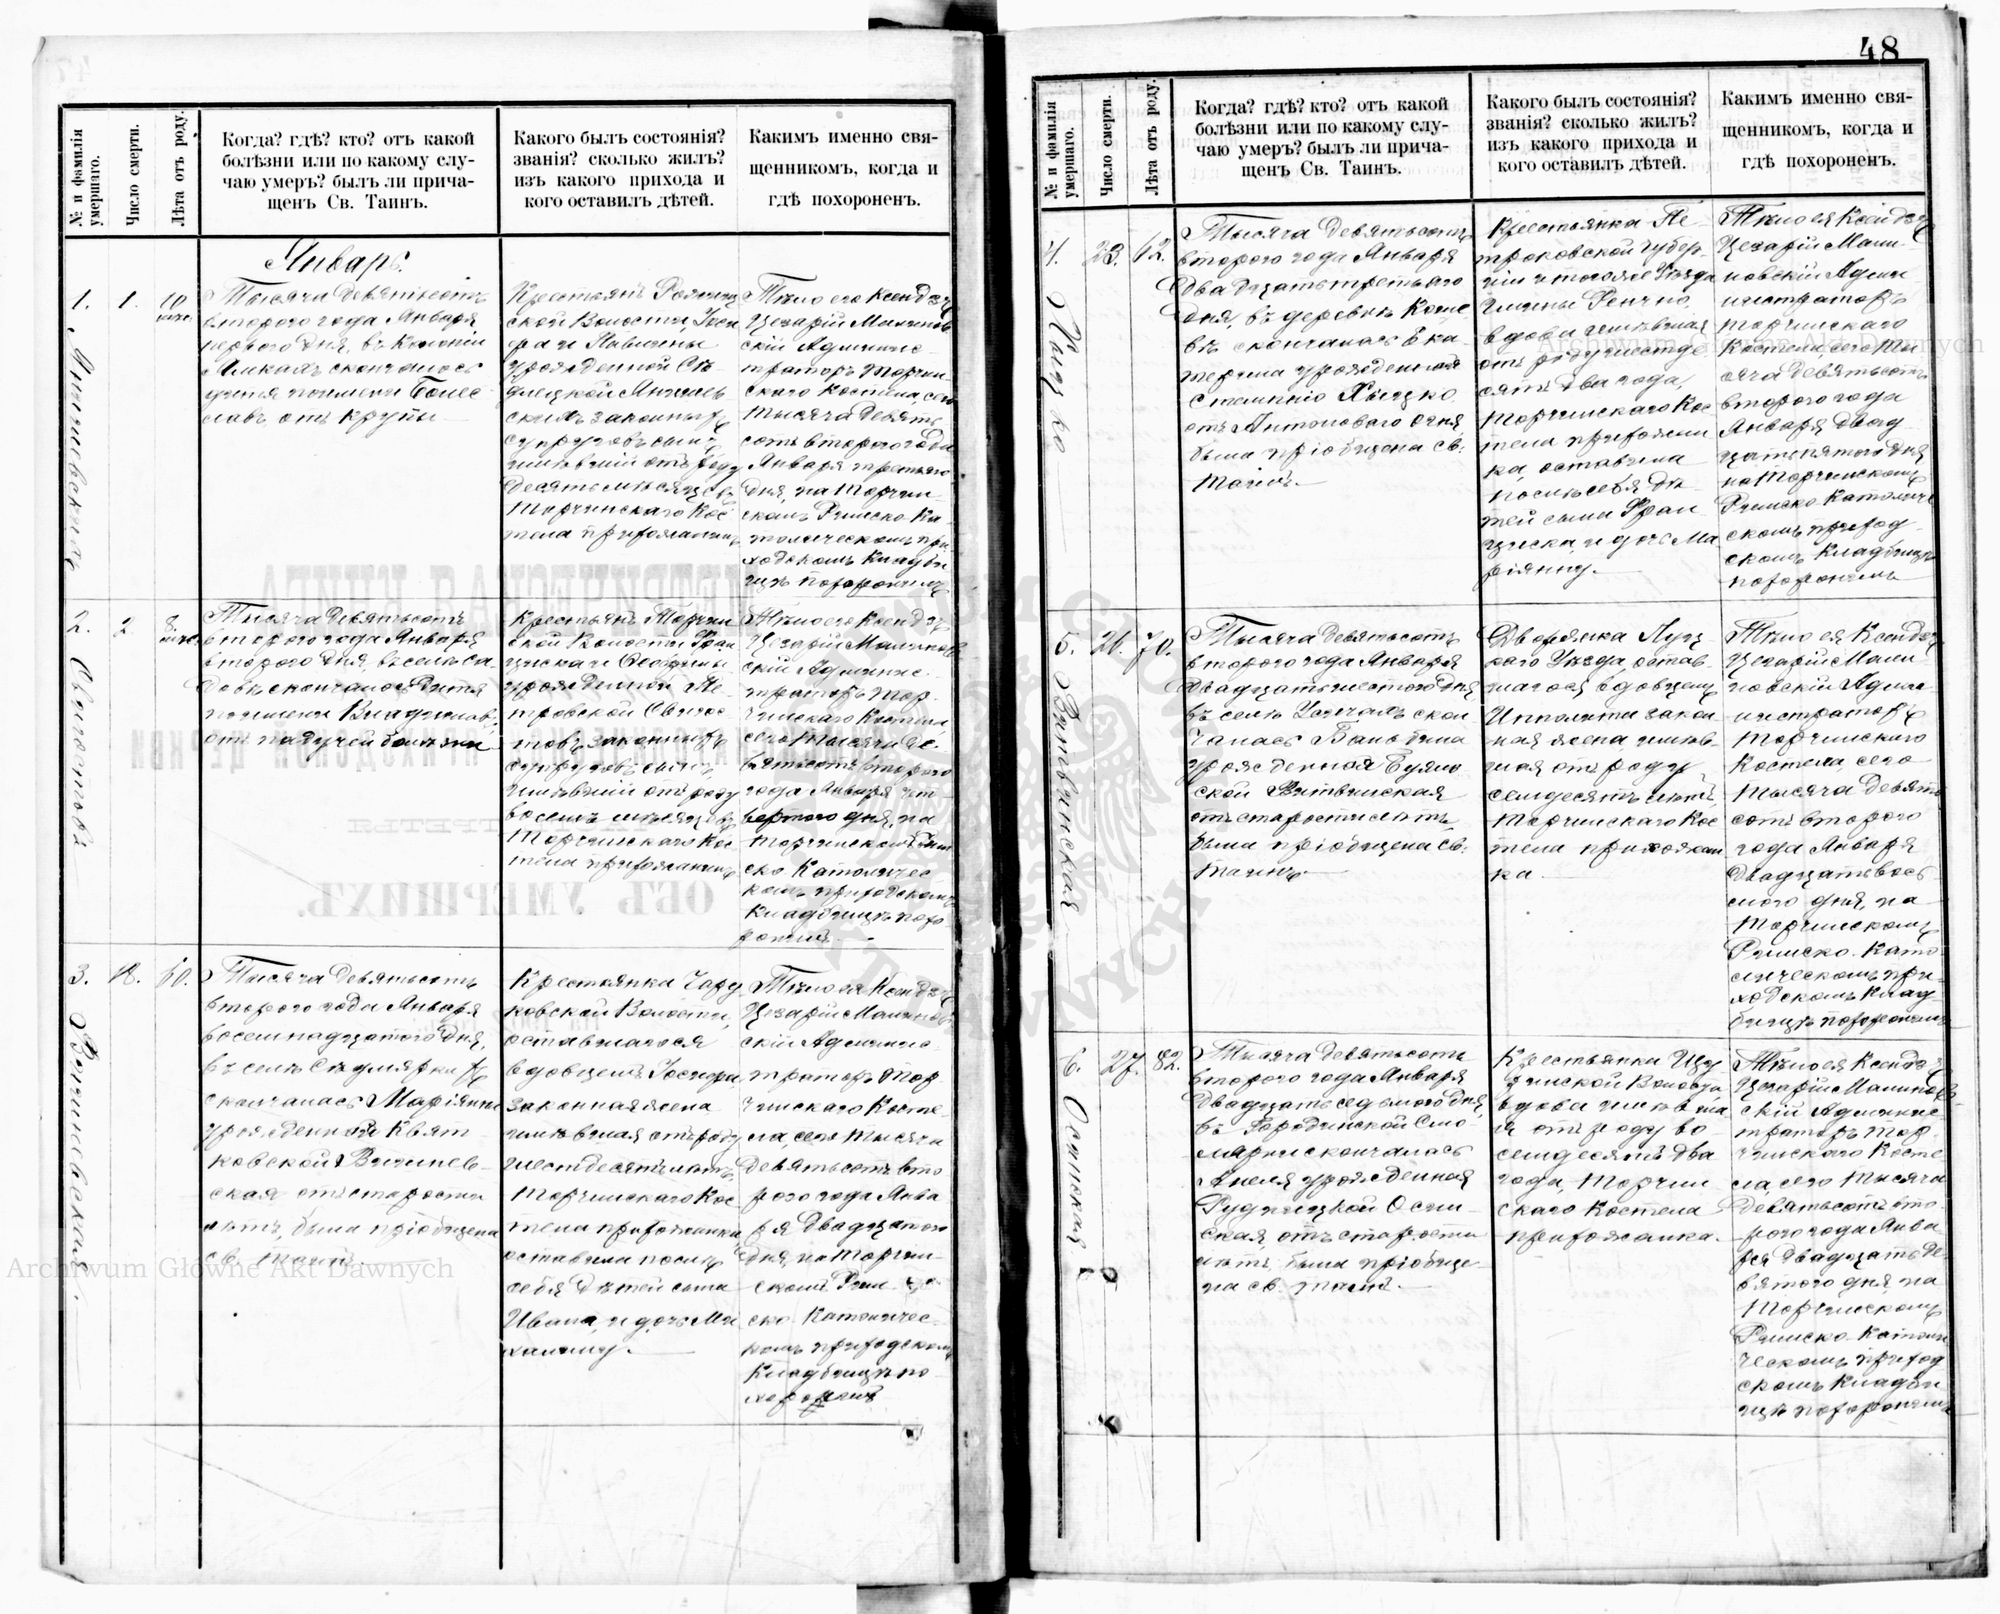 48
№ и фамилія умершаго.
Число смерти.
Лѣта отъ роду.
Когда? гдѣ? кто? отъ какой
болѣзни или по какому слу-
чаю умеръ? былъ ли прича-
щенъ Св. Таинъ.
Какого былъ состоянія?
званія? сколько жилъ?
изъ какого прихода и
кого оставилъ дѣтей.
Какимъ именно свя-
щенникомъ, когда и
гдѣ похороненъ.
Январь.
1.
1.
10
Тысяча девятьсотъ
второго года Января
перваго дня, въ Колоніи
скончалось
дитя по имени Болес-
лавъ, отъ крупы
Крестьянъ
ской Волости,
и Павлины
урожденной
законныхъ
супруговъ сынъ,
имѣвшій отъ роду
десять мѣсяцевъ
Торчинскаго Кос
тела прихожанинъ
Тѣло его Ксендзъ
Цезарій Малинов
скій Админис-
траторъ Торчин
скаго Костела, сего
тысяча девять
сотъ второго года
Января третьяго
дня, на Торчин
скомъ Римско Ка-
толическомъ при-
ходскомъ кладби
щѣ похоронилъ
2.
2
8.
Тысяча девятьсотъ
второго года Января
второго дня, въ селѣ Са-
довѣ скончалось дитя
по имени Владиславъ,
отъ падучей болѣзни
Крестьянъ Торчин
ской Волости Фран
циска и
урожденной Пе-
тровской
законныхъ
супруговъ сынъ,
имѣвшій отъ роду
восемь мѣсяцевъ
Торчинскаго Кос
тела прихожанинъ
Тѣло его Ксендзъ
Цезарій Малинов
скій Админис-
траторъ Тор
чинскаго Костела,
сего тысяча де-
вятьсотъ второго
года Января чет
вертого дня, на
Торчинскомъ Рим
ско Католичес-
комъ приходскомъ
кладбищѣ похо
ронилъ
3.
18.
60.
Вишневская
Тысяча девятьсотъ
второго года Января
восемнадцатого дня,
въ селѣ
скончалась Маріянна
урожденная Квят-
ковской Вишнев-
ская отъ старости
лѣтъ, была пріобщена
св. таинъ.
Крестьянка Чару
ковской Волости,
оставшагося
вдовцемъ
законная жена
имѣвшая отъ роду
шестьдесятъ лѣтъ,
Торчинскаго Кос
тела прихожанка,
оставила послѣ
себя дѣтей сына
Ивана, и дочь Ми
халину.
Тѣло ея Ксендзъ
Цезарій Малинов
скій Админис-
траторъ Тор
чинскаго Косте
ла сего тысяча
девятьсотъ вто
рого года Янва
ря двадцатого
дня, на Торчин-
скомъ Рим
ско Католичес-
комъ приходскомъ
кладбищѣ по-
хоронилъ
№ и фамилія умершаго.
Число смерти.
Лѣта отъ роду.
Когда? гдѣ? кто? отъ какой
болѣзни или по какому слу-
чаю умеръ? былъ ли прича-
щенъ Св. Таинъ.
Какого былъ состоянія?
званія? сколько жилъ?
изъ какого прихода и
кого оставилъ дѣтей.
Какимъ именно свя-
щенникомъ, когда и
гдѣ похороненъ.
4.
23.
62.
Тысяча девятьсотъ
второго года Января
двадцать третьяго
дня, въ деревнѣ
скончалась Ека-
терина урожденная
отъ Антоноваго огня
была пріобщена св.
таинъ.
Крестьянка Пе-
троковской Губер-
ніи и того же Уѣзда
Гмины
вдова имѣвшая
отъ роду шестьде
сятъ два года,
Торчинскаго Кос
тела прихожан
ка, оставила
послѣ себя дѣ
тей сына Фран
циска, и дочь Ма
ріянну.
Тѣло ея Ксендзъ
Цезарій Мали-
новскій Адми
нистраторъ
Торчинскаго
Костела, сего ты
сяча девятьсотъ
второго года
Января двад
цать пятого дня
на Торчинскомъ
Римско Католиче
скомъ приход
скомъ кладбищѣ
похоронилъ
5.
26.
70.
Витвинская
Тысяча девятьсотъ
второго года Января
двадцать шестого дня
въ селѣ скон
чалась Бальбина
урожденная
ской Витвинская
отъ старости лѣтъ,
была пріобщена св.
таинъ
Дворянка Луц
каго Уѣзда остав-
шагося вдовцемъ
Ипполита закон
ная жена имѣв-
шая отъ роду
семдесятъ лѣтъ,
Торчинскаго Кос
тела прихожан
ка.
Тѣло ея Ксендзъ
Цезарій Мали
новскій Адми-
нистраторъ
Торчинскаго
Костела, сего
тысяча девять
сотъ второго
года Января
двадцать вось-
мого дня, на
Торчинскомъ
Римско-Като
лическомъ при-
ходскомъ клад
бищѣ похоронилъ
6.
27.
82.
Осинская
Тысяча девятьсотъ
второго года Января
двадцать седьмого дня
въ Городинской Смо
лярни скончалась
Анеля урожденная
Рудницкой Осин-
ская, отъ старости
лѣтъ, была пріобще-
на св. таинъ.
Крестьянка
Волости,
вдова имѣвша
я отъ роду во-
семдесятъ два
года, Торчин
скаго Костела
прихожанка.
Тѣло ея Ксендзъ
Цезарій Малинов
скій Админис
траторъ Тор-
чинскаго Косте
ла, сего тысяча
девятьсотъ вто-
рого года Янва
ря двадцать де-
вятого дня, на
Торчинскомъ
Римско-Католи
ческомъ приход
скомъ кладби
щѣ похоронилъ
Archiwum Główne Akt Dawnych
Archiwum Główne Akt Dawnych